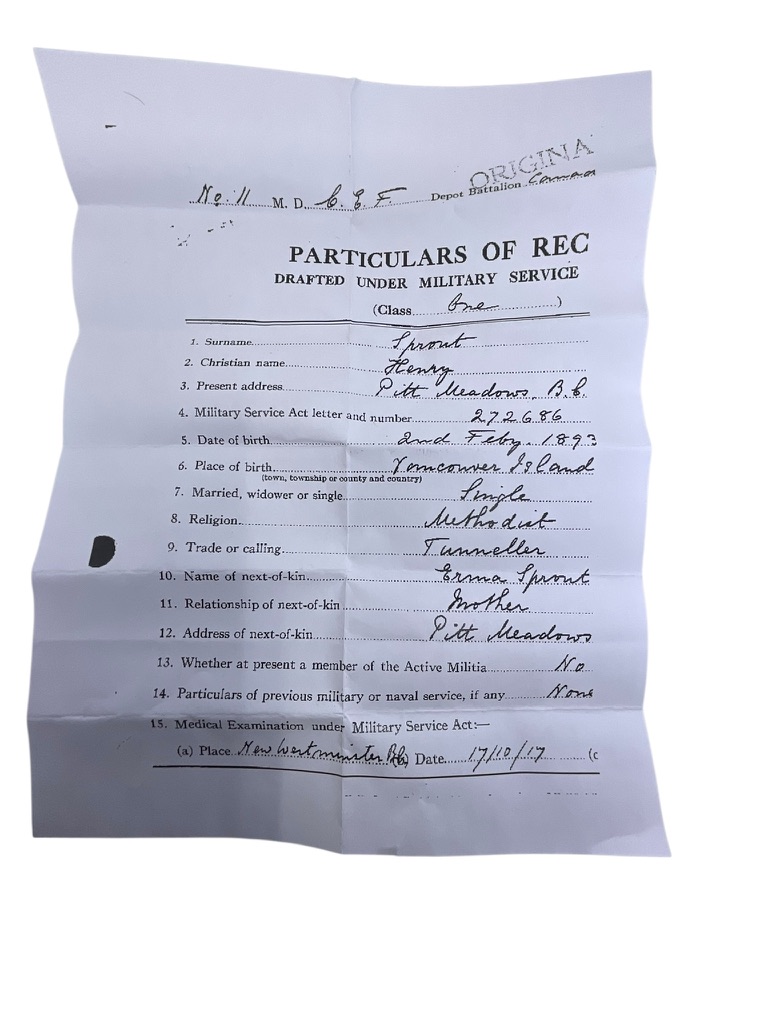 ORIGINA
No. 11 M. D. C. E. F. Depot Battalion
PARTICULARS OF REC
DRAFTED UNDER MILITARY SERVICE
(Class One )
1. Surname Sprout
2. Christian name Henry
3. Present address Pitt Meadows, B.C.
4. Military Service Act letter and number 272686
5. Date of birth 2nd Feby. 1893
6. Place of birth Vancouver Island
(town, township or county and country)
7. Married, widower or single Single
8. Religion Methodist
9. Trade or calling Tunneller
10. Name of next-of-kin Erma Sprout
11. Relationship of next-of-kin Mother
12. Address of next-of-kin Pitt Meadows
13. Whether at present a member of the Active Militia No
14. Particulars of previous military or naval service, if any None
15. Medical Examination under Military Service Act:—
(a) Place New Westminster B.C. (b) Date 17/10/17 (c